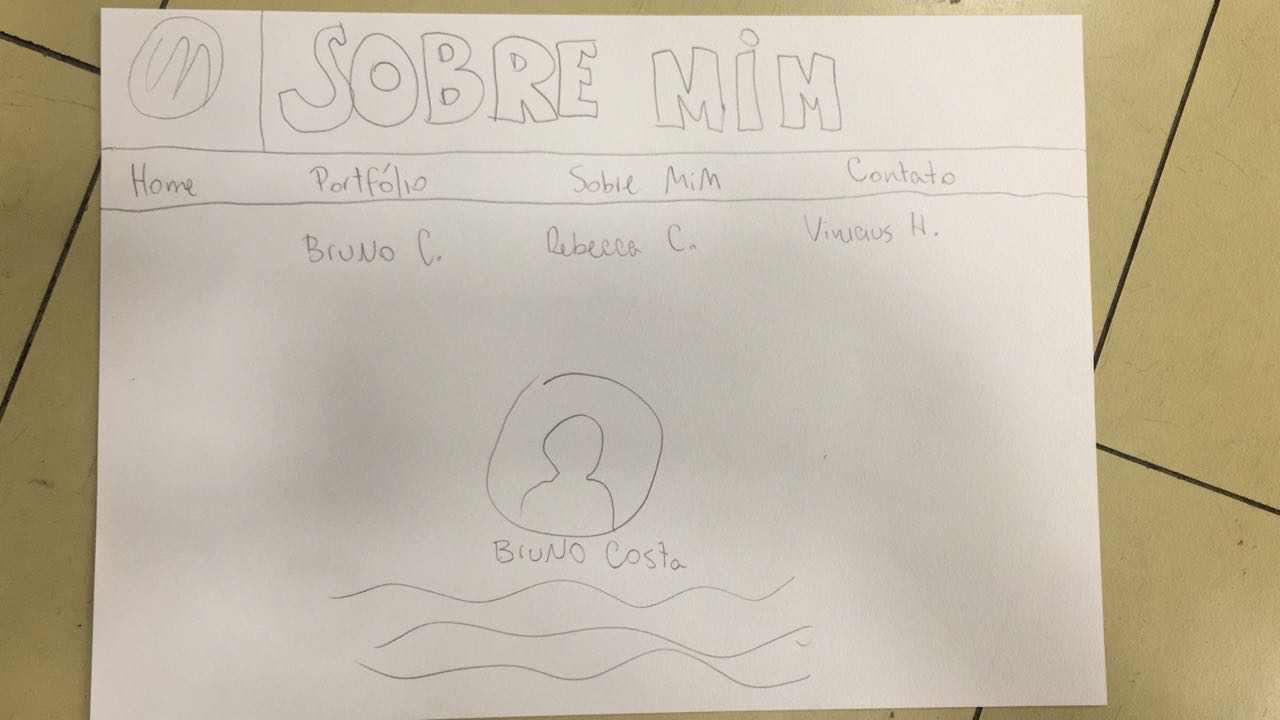 SOBRE MiM
Home Portfólio Sobre MiM Contato
Bruno C. Rebecca C. Vinicius H.
Bruno Costa